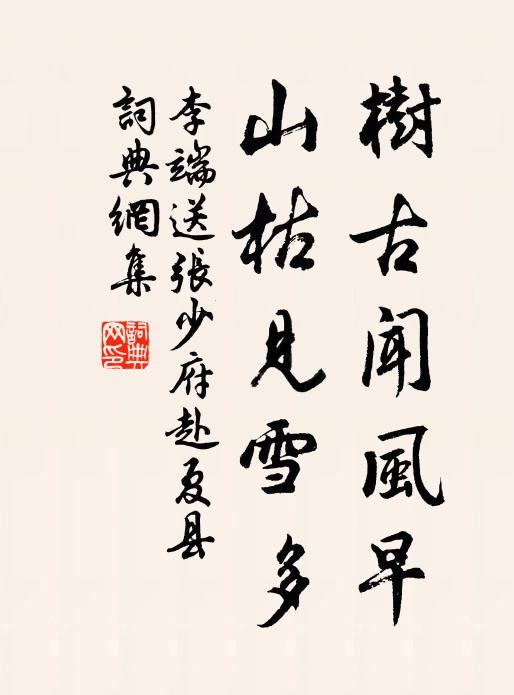 樹古聞風早
山枯見雪多
李端送張少府赴夏县
詞典網集
詞典
网印